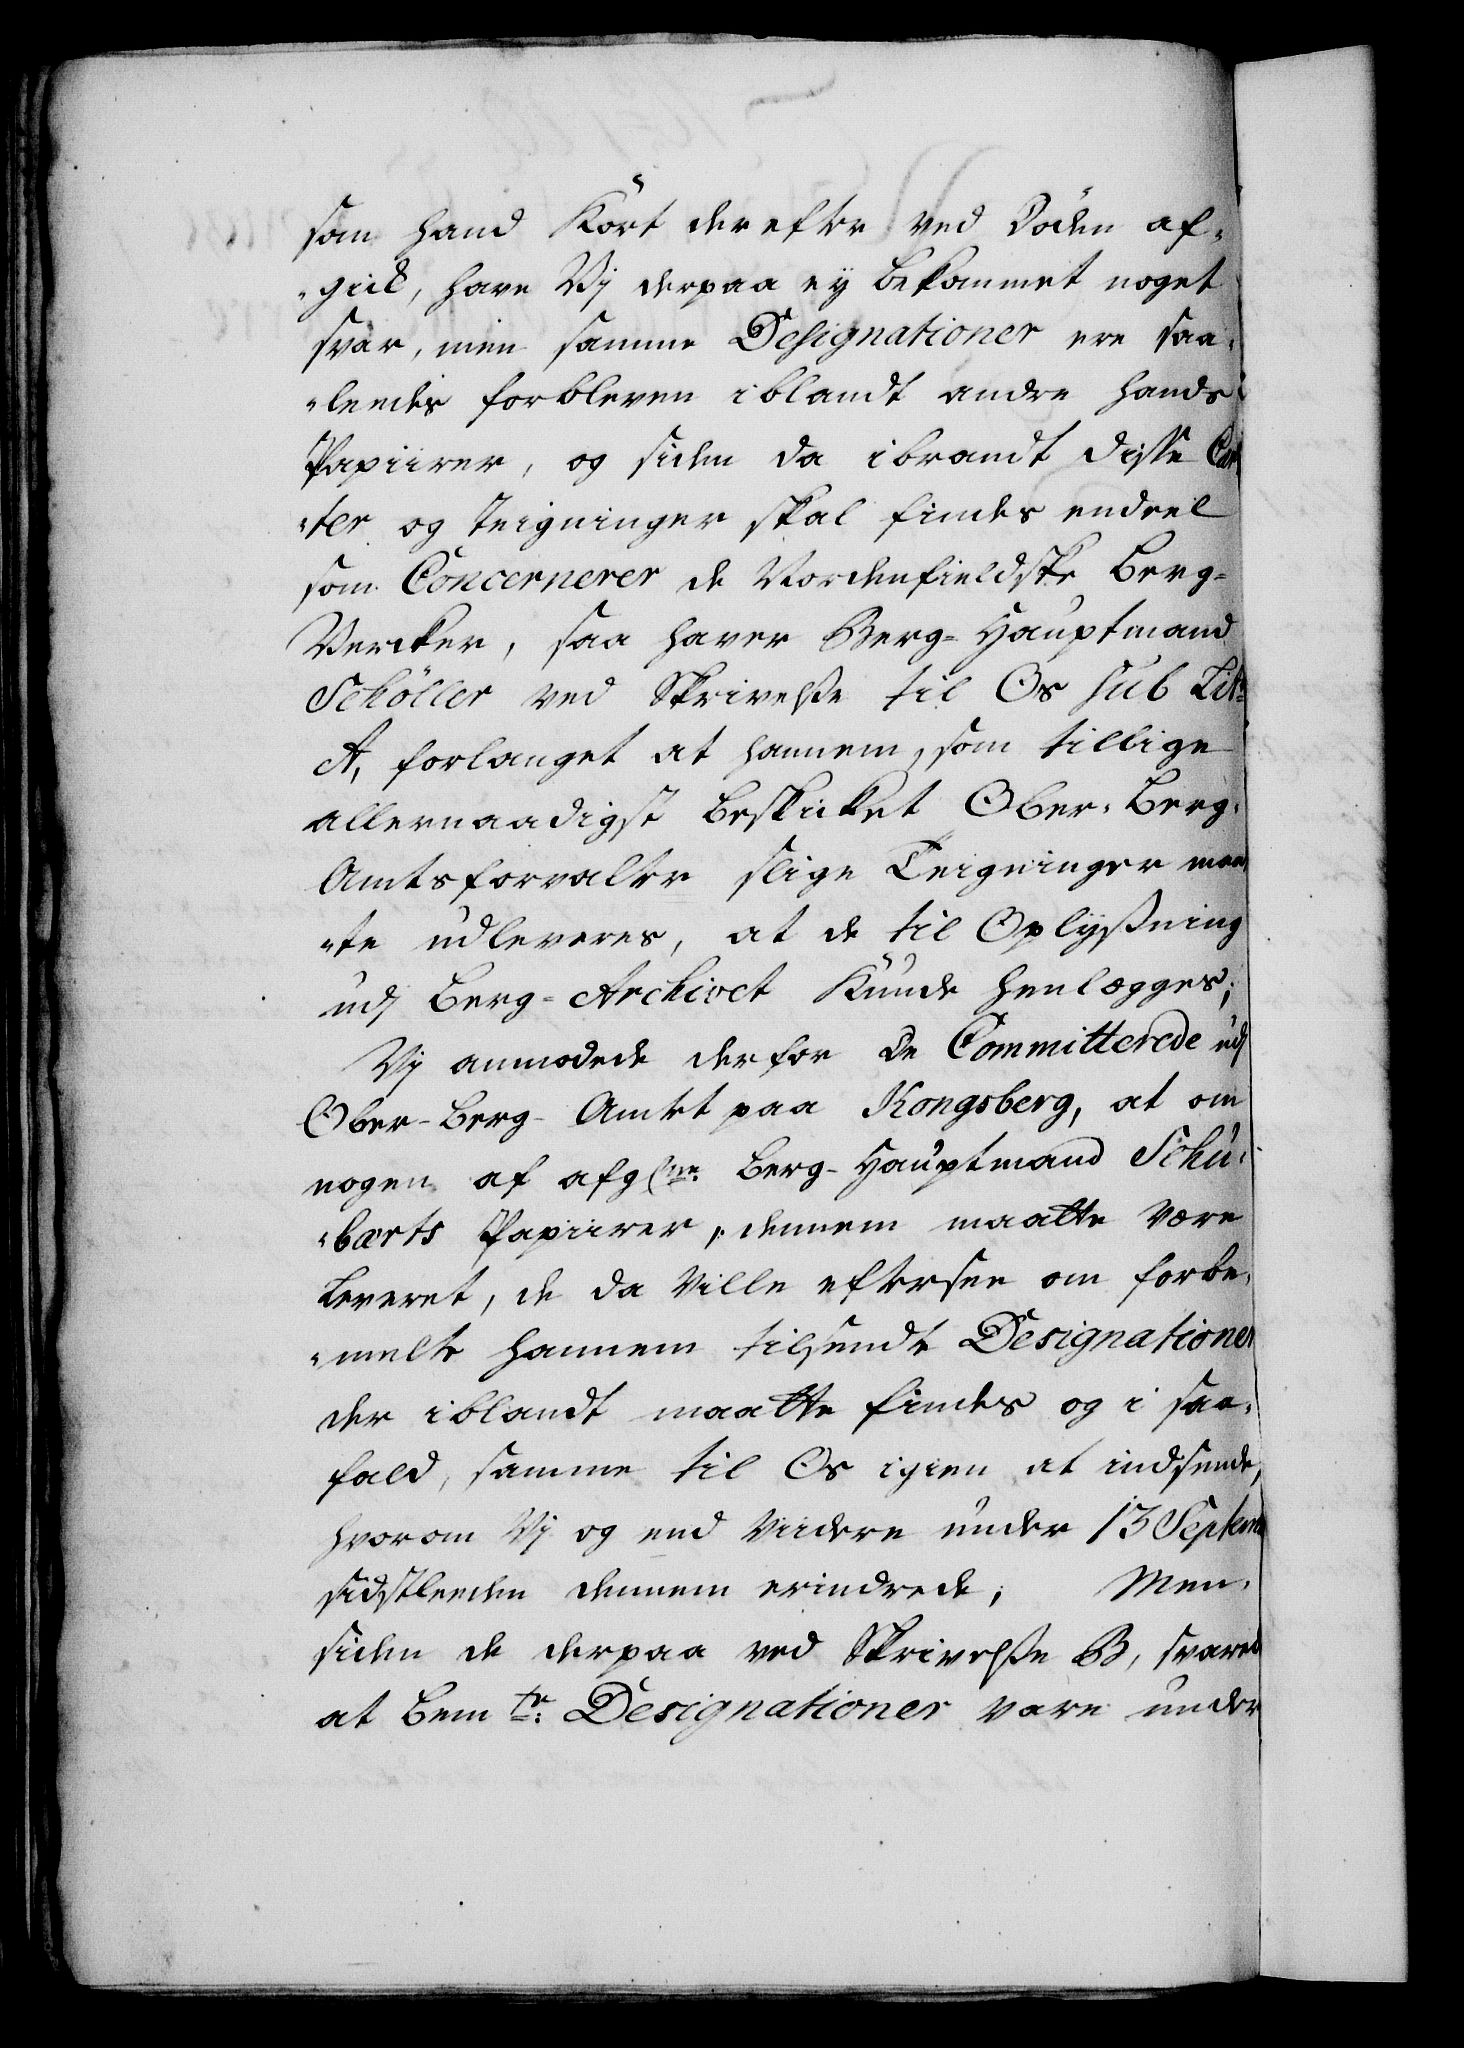 som hand Kört der efter ved Döden af-
-gick, have Vj derpaa ey bekommet noget
svar, men samme Designationer ere saa-
-ledes forbleven iblandt andre hands
Papiirer, og siden da iblandt disse Car-
-ter og Teigninger skal findes endeel
som Concernerer de Nordenfieldske Berg-
Vercker, saa haver Berg-Hauptmand
Schöller ved Skrivelße til Os sub Litr
A, forlanget at hannem, som tillige
allernaadigst beskicket Ober-Berg-
Amtsforvalter slige Teigninger maa-
-te udleveres, at de til Oplyßning
udj Berg-Archivet Kunde henlægges;
Vj anmodede derfor De Committerede udj
Ober-Berg-Amtet paa Kongsberg, at om
nogen af afgl:ne Berg-Hauptmand Schu-
-bærts Papiirer, dennem maatte være
leveret, de da ville eftersee om forbe-
-melte hannem tilsendte Designationer
der iblandt maatte findes og i saa-
fald, samme til Os igien at indsende,
hvorom Vj og end viidere under 13 Septemb
sidstleeden dennem erindrede; Men-
siden de derpaa ved Skrivelße B, svared
at bem:te Designationer vare under